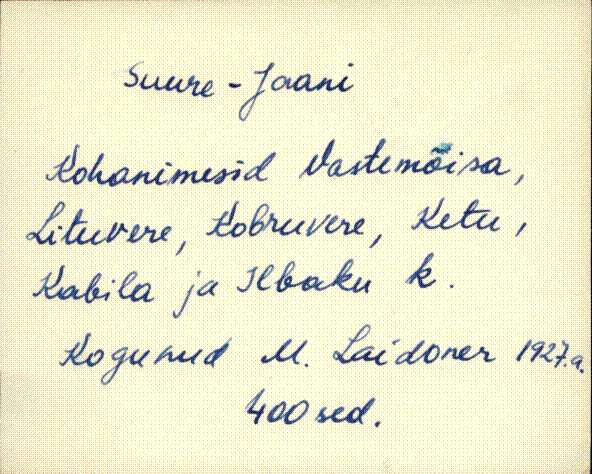 Suure-Jaani
Kohanimesid Vastemõisa,
Lituvere, Kobruvere, Ketu,
Kabila ja Ilbaku k.
Kogunud M. Laidoner 1927.a.
400 sed.